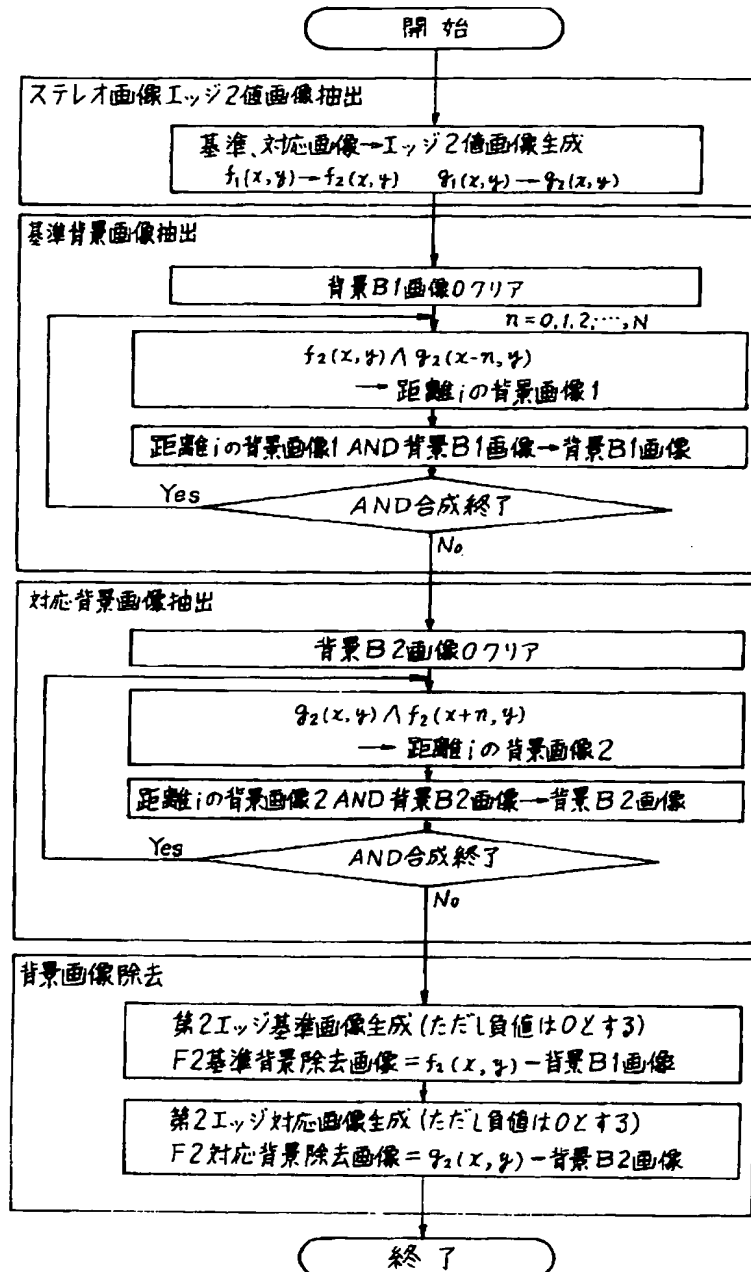 開始
ステレオ画像エッジ2値画像抽出
基準、対応画像→エッジ2値画像生成
f₁(x,y)→f₂(x,y) g₁(x,y)→g₂(x,y)
基準背景画像抽出
背景B1画像0クリア
n=0,1,2,…,N
f₂(x,y)∧g₂(x-n,y)
→距離iの背景画像1
距離iの背景画像1 AND背景B1画像→背景B1画像
Yes
AND合成終了
No
対応背景画像抽出
背景B2画像0クリア
g₂(x,y)∧f₂(x+n,y)
→距離iの背景画像2
距離iの背景画像2 AND背景B2画像→背景B2画像
Yes
AND合成終了
No
背景画像除去
第2エッジ基準画像生成(ただし負値は0とする)
F2基準背景除去画像=f₂(x,y)-背景B1画像
第2エッジ対応画像生成(ただし負値は0とする)
F2対応背景除去画像=g₂(x,y)-背景B2画像
終了